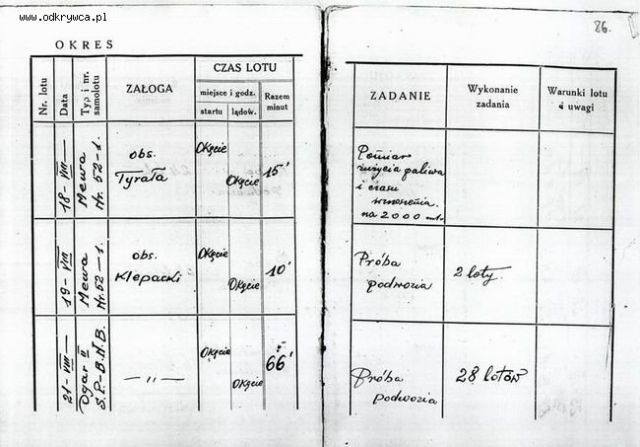 www.odkrywca.pl
26.
OKRES
Nr. lotu
Data
Typ i nr. samolotu
ZAŁOGA
CZAS LOTU
miejsce i godz.
startu
lądów.
Razem minut
ZADANIE
Wykonanie zadania
Warunki lotu i uwagi
18-VIII-
Mewa
Nr. 52-1.
obs.
Tyrała
Okęcie
Okęcie
15'
Pomiar
zużycia paliwa
i czasu
wznoszenia
na 2000 mt.
19-VIII
Mewa
Nr. 52-1.
obs.
Klepacki
Okęcie
Okęcie
10'
Próba
podwozia
2 loty
21-VIII-
Ogar II
S.P.-B.N.B.
—"—
Okęcie
Okęcie
66'
Próba
podwozia
28 lotów